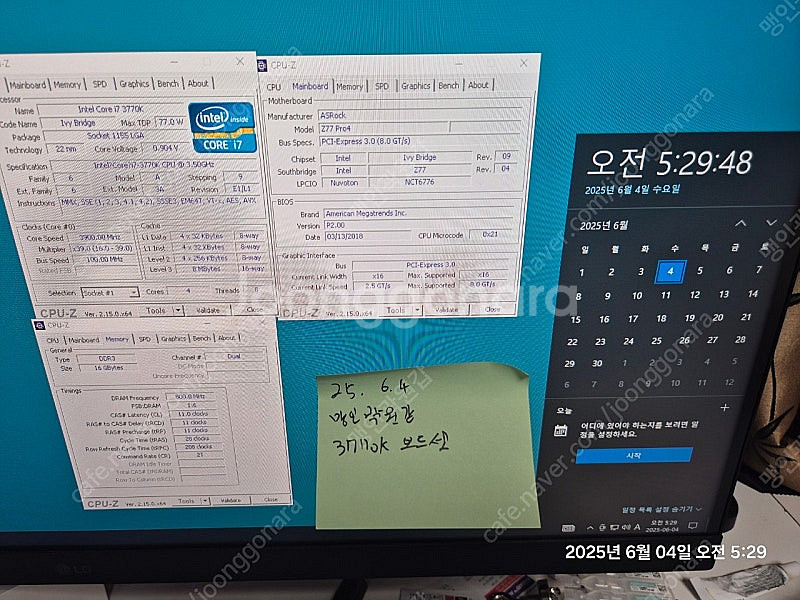 CPU-Z
Mainboard Memory SPD Graphics Bench About
Name Intel Core i7 3770K
Code Name Ivy Bridge Max TDP 77.0 W
Package Socket 1155 LGA
Technology 22 nm Core Voltage 0.904 V
intel inside
CORE i7
Specification Intel Core i7-3770K CPU @ 3.50GHz
Family 6 Model A Stepping 9
Ext. Family 6 Ext. Model 3A Revision E1/L1
Instructions MMX, SSE (1, 2, 3, 4.1, 4.2), SSSE3, EM64T, VT-x, AES, AVX
Clocks (Core #0)
Core Speed 3900.00 MHz
Multiplier x39.0 (16.0 - 39.0)
Bus Speed 100.00 MHz
Rated FSB
Cache
L1 Data 4 x 32 KBytes 8-way
L1 Inst. 4 x 32 KBytes 8-way
Level 2 4 x 256 KBytes 8-way
Level 3 8 MBytes 16-way
Selection Socket #1 Cores 4 Threads 8
CPU-Z Ver. 2.15.0.x64 Tools Validate Close
CPU-Z
CPU Mainboard Memory SPD Graphics Bench About
Motherboard
Manufacturer ASRock
Model Z77 Pro4
Bus Specs. PCI-Express 3.0 (8.0 GT/s)
Chipset Intel Ivy Bridge Rev. 09
Southbridge Intel Z77 Rev. 04
LPCIO Nuvoton NCT6776
BIOS
Brand American Megatrends Inc.
Version P2.00
Date 03/13/2018 CPU Microcode 0x21
Graphic Interface
Bus PCI-Express 3.0
Current Link Width x16 Max. Supported x16
Current Link Speed 2.5 GT/s Max. Supported 8.0 GT/s
CPU-Z Ver. 2.15.0.x64 Tools Validate Close
CPU-Z
CPU Mainboard Memory SPD Graphics Bench About
General
Type DDR3 Channel # Dual
Size 16 GBytes DC Mode
Uncore Frequency
Timings
DRAM Frequency 800.0 MHz
FSB:DRAM 1:6
CAS# Latency (CL) 11.0 clocks
RAS# to CAS# Delay (tRCD) 11 clocks
RAS# Precharge (tRP) 11 clocks
Cycle Time (tRAS) 28 clocks
Row Refresh Cycle Time (tRFC) 208 clocks
Command Rate (CR) 2T
DRAM Idle Timer
Total CAS# (tRDRAM)
Row To Column (tRCD)
CPU-Z Ver. 2.15.0.x64 Tools Validate Close
25. 6.4
3770k 보드셋
오전 5:29:48
2025년 6월 4일 수요일
2025년 6월
일 월 화 수 목 금 토
1 2 3 4 5 6 7
8 9 10 11 12 13 14
15 16 17 18 19 20 21
22 23 24 25 26 27 28
29 30 1 2 3 4 5
6 7 8 9 10 11 12
오늘
어디에 있어야 하는지를 보려면 일
정을 설정하세요.
시작
일정 목록 설정 숨기기
A 오전 5:29
2025-06-04
LG
2025년 6월 04일 오전 5:29
joonggonara
cafe.naver.com/joonggonara